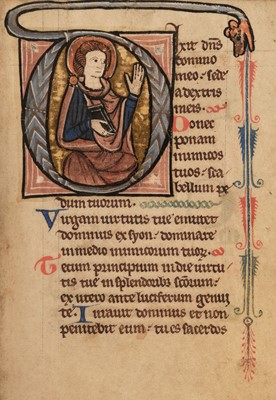 Dixit dn̄s
domino
meo: sede
a dextris
meis.
Donec
ponam
inimicos
tuos: sca
bellum pe
dum tuorum.
Virgam virtutis tue emittet
dominus ex syon: dominare
in medio inimicorum tuoꝝ.
Tecum principium in die virtu
tis tue in splendoribꝫ sc̄orum:
ex utero ante luciferum genui
te. Iuravit dominus et non
penitebit eum: tu es sacerdos